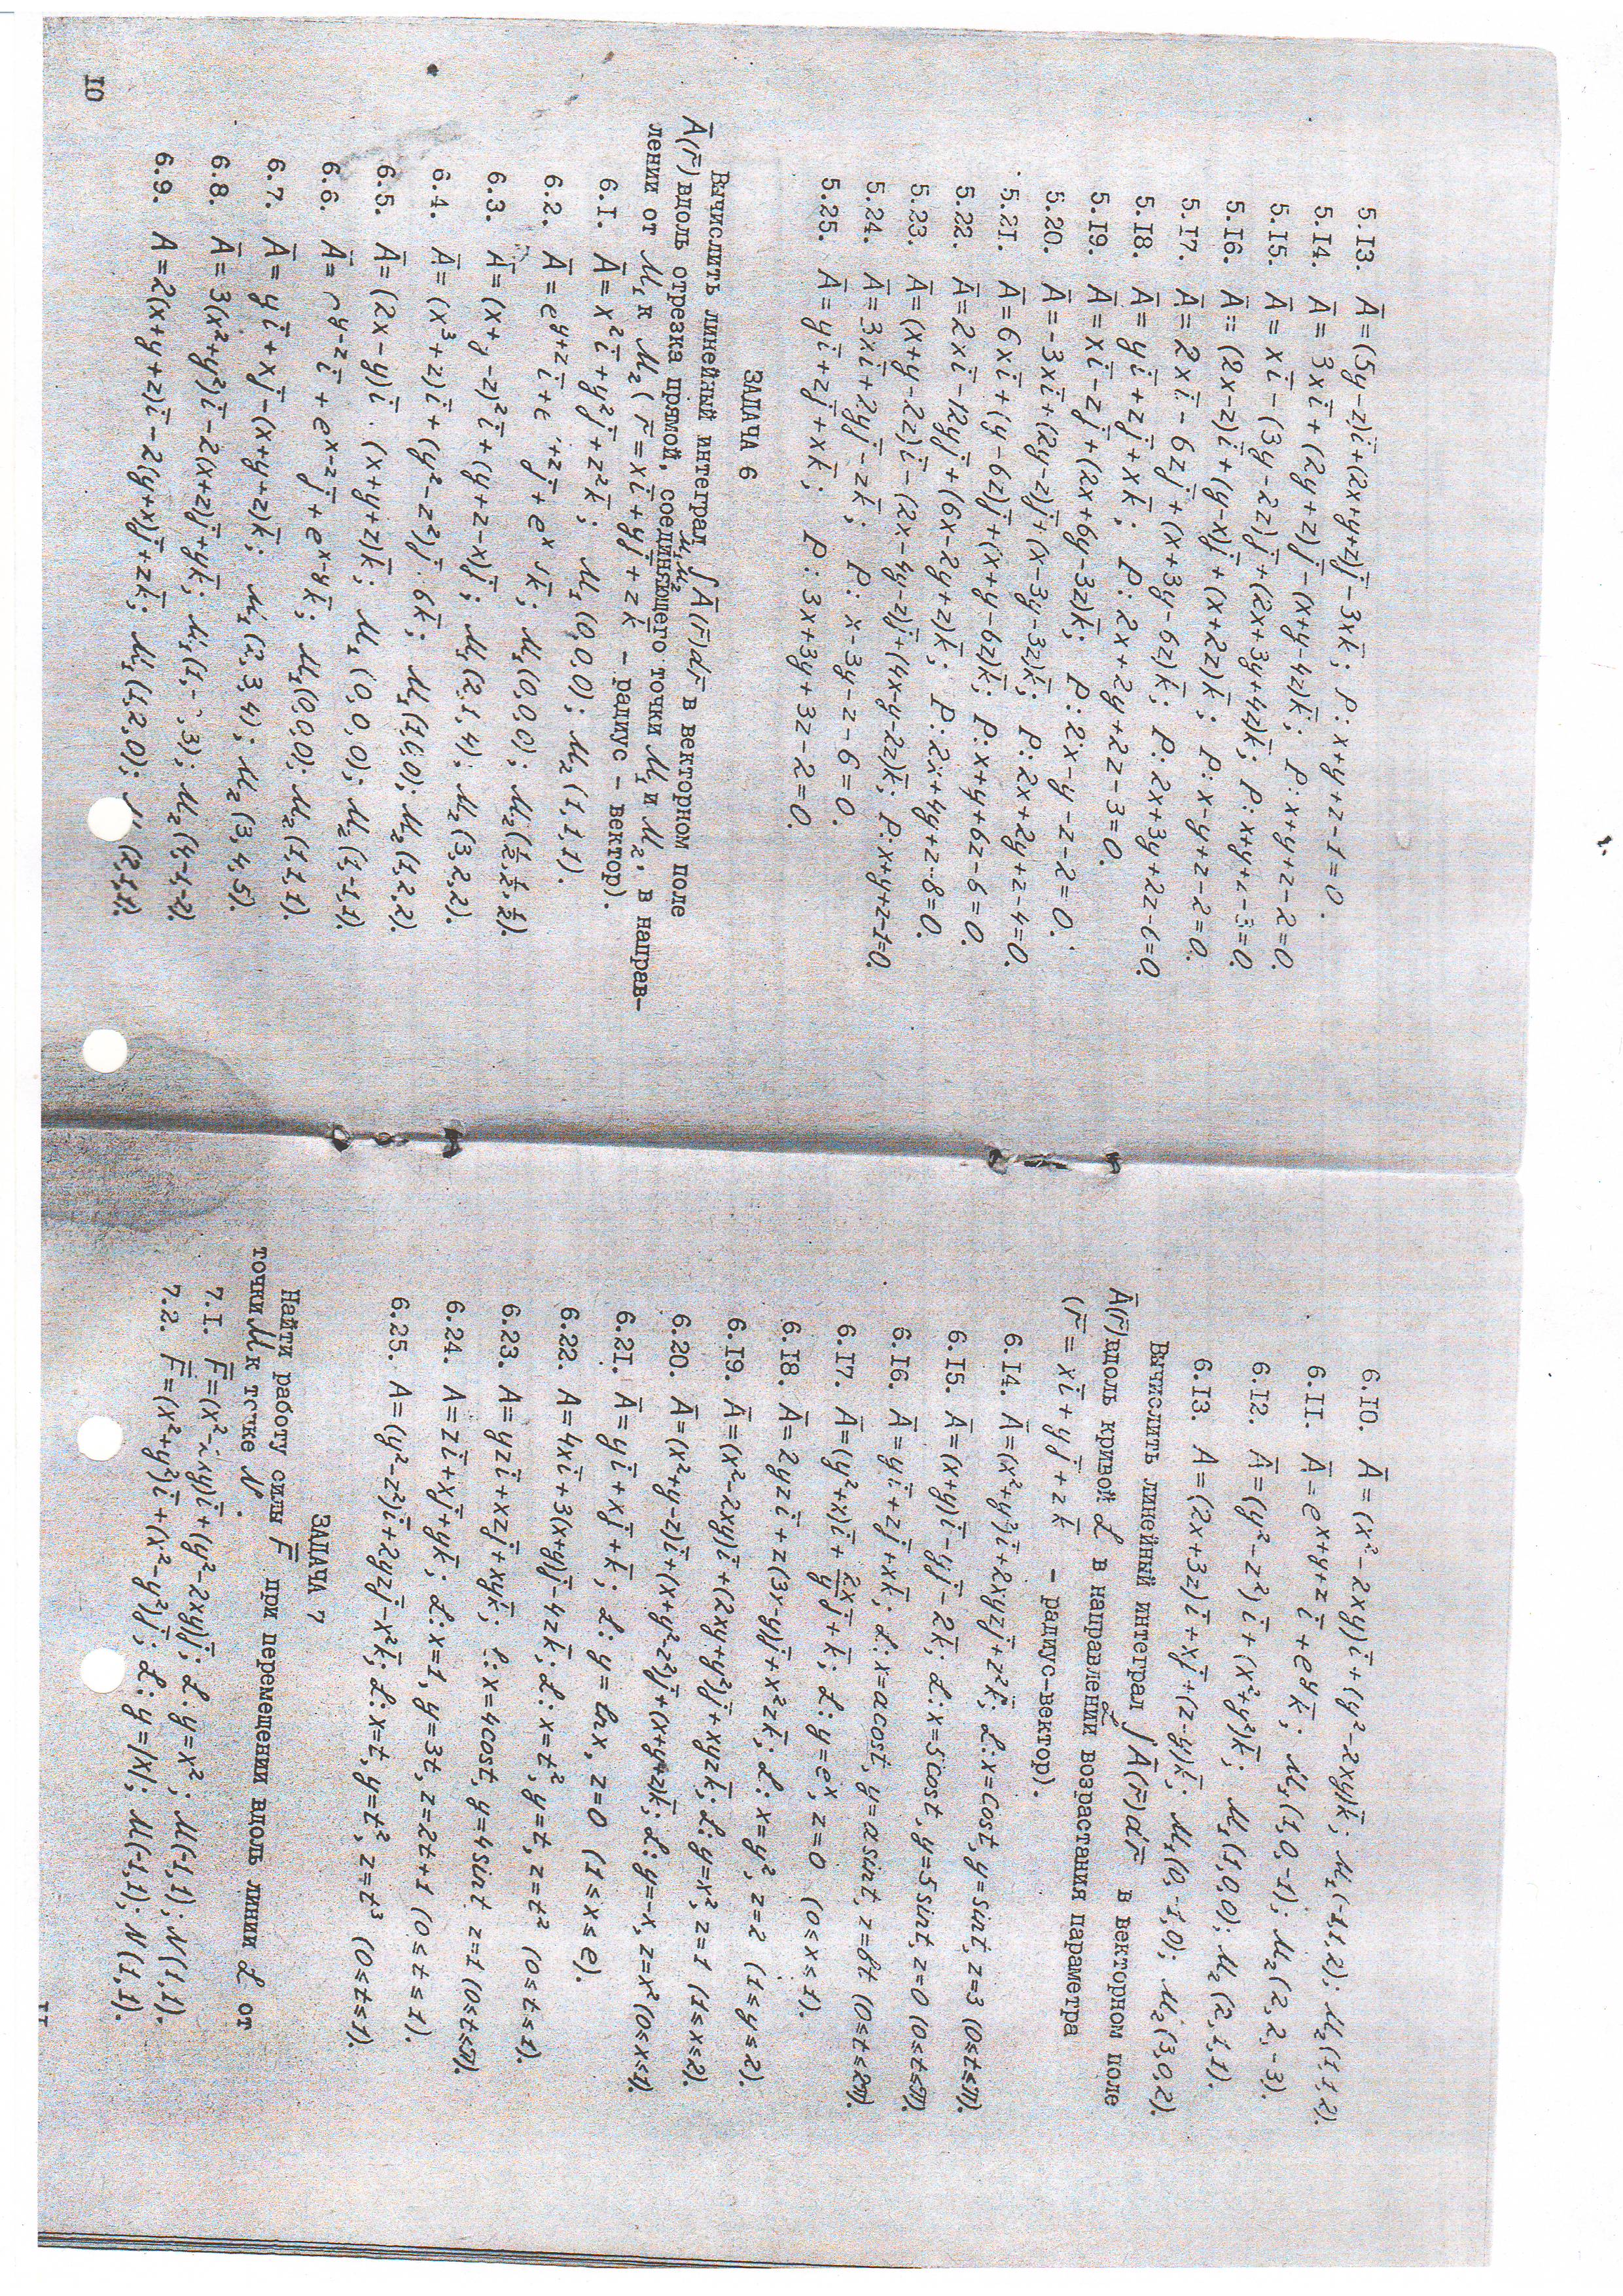 5.13. Ā = (5y-z)ī+(2x+y+z)j̄-3xk̄; P: x+y+z-1=0.
5.14. Ā = 3xī+(2y+z)j̄-(x+y-4z)k̄; P: x+y+z-2=0.
5.15. Ā = xī-(3y-2z)j̄+(2x+3y+4z)k̄; P: x+y+z-3=0.
5.16. Ā = (2x-z)ī+(y-x)j̄+(x+2z)k̄; P: x-y+z-2=0.
5.17. Ā = 2xī-6zj̄+(x+3y-6z)k̄; P: 2x+3y+2z-6=0.
5.18. Ā = yī+zj̄+xk̄; P: 2x+2y+2z-3=0.
5.19. Ā = xī-zj̄+(2x+6y-3z)k̄; P: 2x-y-z-2=0.
5.20. Ā = -3xī+(2y-z)j̄+(x-3y-3z)k̄; P: 2x+2y+z-4=0.
5.21. Ā = 6xī+(y-6z)j̄+(x+y-6z)k̄; P: x+y+6z-6=0.
5.22. Ā = 2xī-12yj̄+(6x-2y+z)k̄; P: 2x+4y+z-8=0.
5.23. Ā = (x+y-2z)ī-(2x-4y-z)j̄+(4x-y-2z)k̄; P: x+y+z-1=0.
5.24. Ā = 3xī+2yj̄-zk̄; P: x-3y-z-6=0.
5.25. Ā = yī+zj̄+xk̄; P: 3x+3y+3z-2=0.
ЗАДАЧА 6
Вычислить линейный интеграл ∫ Ā(r̄)dr̄ в векторном поле
M₁M₂
Ā(r̄) вдоль отрезка прямой, соединяющего точки M₁ и M₂, в направ-
лении от M₁ к M₂ (r̄ = xī+yj̄+zk̄ - радиус - вектор).
6.1. Ā = x²ī+y²j̄+z²k̄; M₁(0,0,0); M₂(1,1,1).
6.2. Ā = e^(y+z)ī+e +zj̄+e^x k̄; M₁(0,0,0); M₂(½,½,½).
6.3. Ā = (x+y-z)²ī+(y+z-x)j̄; M₁(2,1,4); M₂(3,2,2).
6.4. Ā = (x³+z)ī+(y²-z²)j̄ 6k̄; M₁(1,0,0); M₂(1,2,2).
6.5. Ā = (2x-y)ī (x+y+z)k̄; M₁(0,0,0); M₂(1,-1,1).
6.6. Ā = e^(y-z)ī+e^(x-z)j̄+e^(x-y)k̄; M₁(0,0,0); M₂(1,1,1).
6.7. Ā = yī+xj̄-(x+y+z)k̄; M₁(2,3,4); M₂(3,4,5).
6.8. Ā = 3(x²+y²)ī-2(x+z)j̄+yk̄; M₁(1,- ,3); M₂(4,-1,-2).
6.9. Ā = 2(x+y+z)ī-2(y+x)j̄+zk̄; M₁(1,2,0); M (2,1,1).
10
6.10. Ā = (x²-2xy)ī+(y²-2xy)k̄; M₁(-1,1,2); M₂(1,1,2).
6.11. Ā = e^(x+y+z)ī+e^y k̄; M₁(1,0,-1); M₂(2,2,-3).
6.12. Ā = (y²-z²)ī+(x²+y²)k̄; M₁(1,0,0); M₂(2,1,1).
6.13. A = (2x+3z)ī+xj̄+(z-y)k̄; M₁(0,-1,0); M₂(3,0,2).
Вычислить линейный интеграл ∫ Ā(r̄)dr̄ в векторном поле
L
Ā(r̄) вдоль кривой L в направлении возрастания параметра
(r̄ = xī+yj̄+zk̄ - радиус-вектор).
6.14. Ā = (x²+y²)ī+2xyzj̄+z²k̄; L: x=cost, y=sint, z=3 (0≤t≤π).
6.15. Ā = (x+y)ī-yj̄-2k̄; L: x=5cost, y=5sint, z=0 (0≤t≤π).
6.16. Ā = yī+zj̄+xk̄; L: x=acost, y=asint, z=bt (0≤t≤2π).
6.17. Ā = (y²+x)ī+2x/y j̄+k̄; L: y=e^x, z=0 (0≤x≤1).
6.18. Ā = 2yzī+z(3x-y)j̄+x²zk̄; L: x=y², z=2 (1≤y≤2).
6.19. Ā = (x²-2xy)ī+(2xy+y²)j̄+xyzk̄; L: y=x², z=1 (1≤x≤2).
6.20. Ā = (x²+y-z)ī+(x+y²-z²)j̄+(x+y+z)k̄; L: y=-x, z=x² (0≤x≤1).
6.21. Ā = yī+xj̄+k̄; L: y=lnx, z=0 (1≤x≤e).
6.22. A = 4xī+3(x+y)j̄-4zk̄; L: x=t², y=t, z=t² (0≤t≤1).
6.23. A = yzī+xzj̄+xyk̄; L: x=4cost, y=4sint z=1 (0≤t≤π).
6.24. A = zī+xj̄+yk̄; L: x=1, y=3t, z=2t+1 (0≤t≤1).
6.25. A = (y²-z²)ī+2yzj̄-x²k̄; L: x=t, y=t², z=t³ (0≤t≤1).
ЗАДАЧА 7
Найти работу силы F̄ при перемещении вдоль линии L от
точки M к точке N.
7.1. F̄ = (x²-2xy)ī+(y²-2xy)j̄; L: y=x²; M(-1,1); N(1,1).
7.2. F̄ = (x²+y²)ī+(x²-y²)j̄; L: y=|x|; M(-1,1); N(1,1).